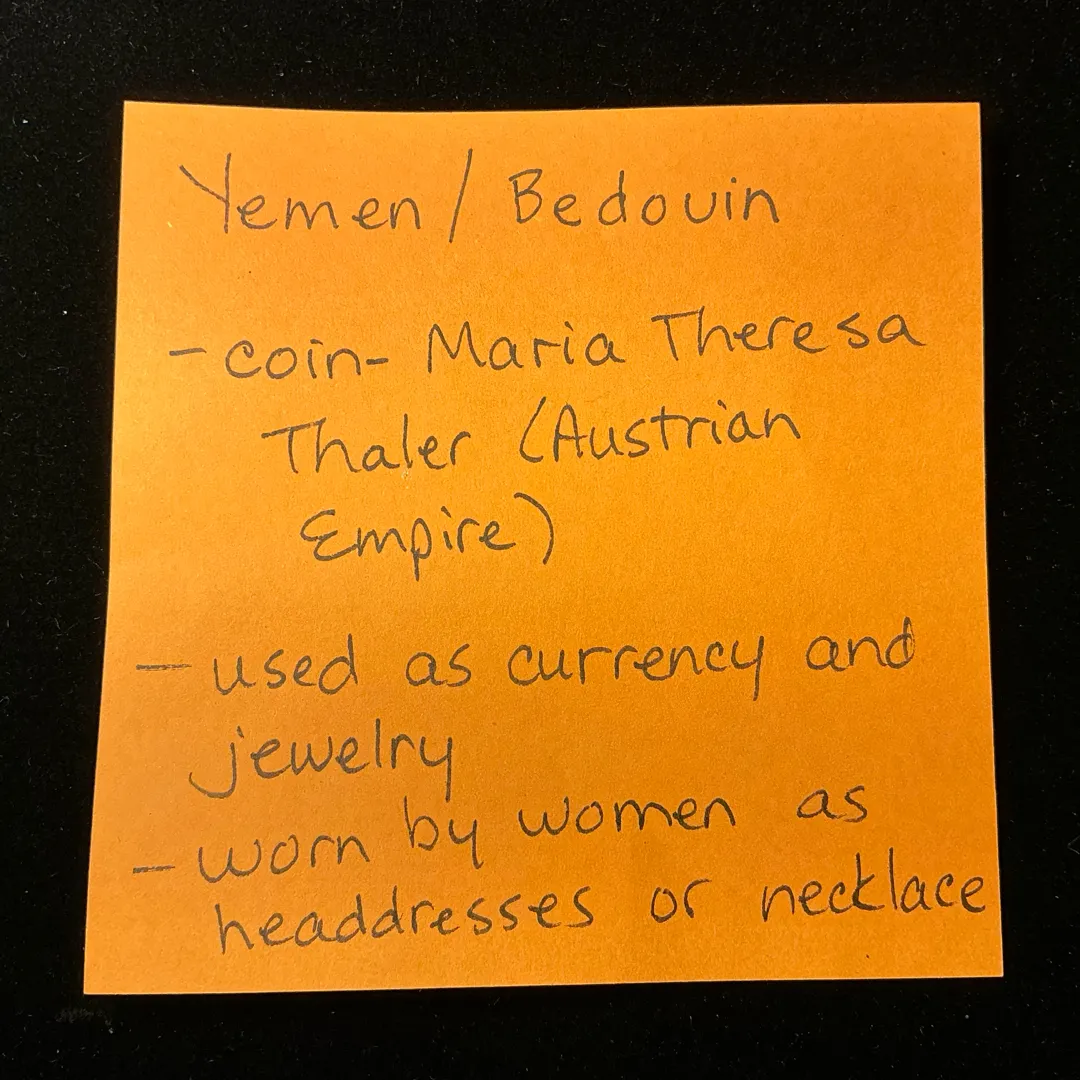 Yemen / Bedouin
- coin- Maria Theresa
Thaler (Austrian
Empire)
- used as currency and
jewelry
- worn by women as
headdresses or necklace